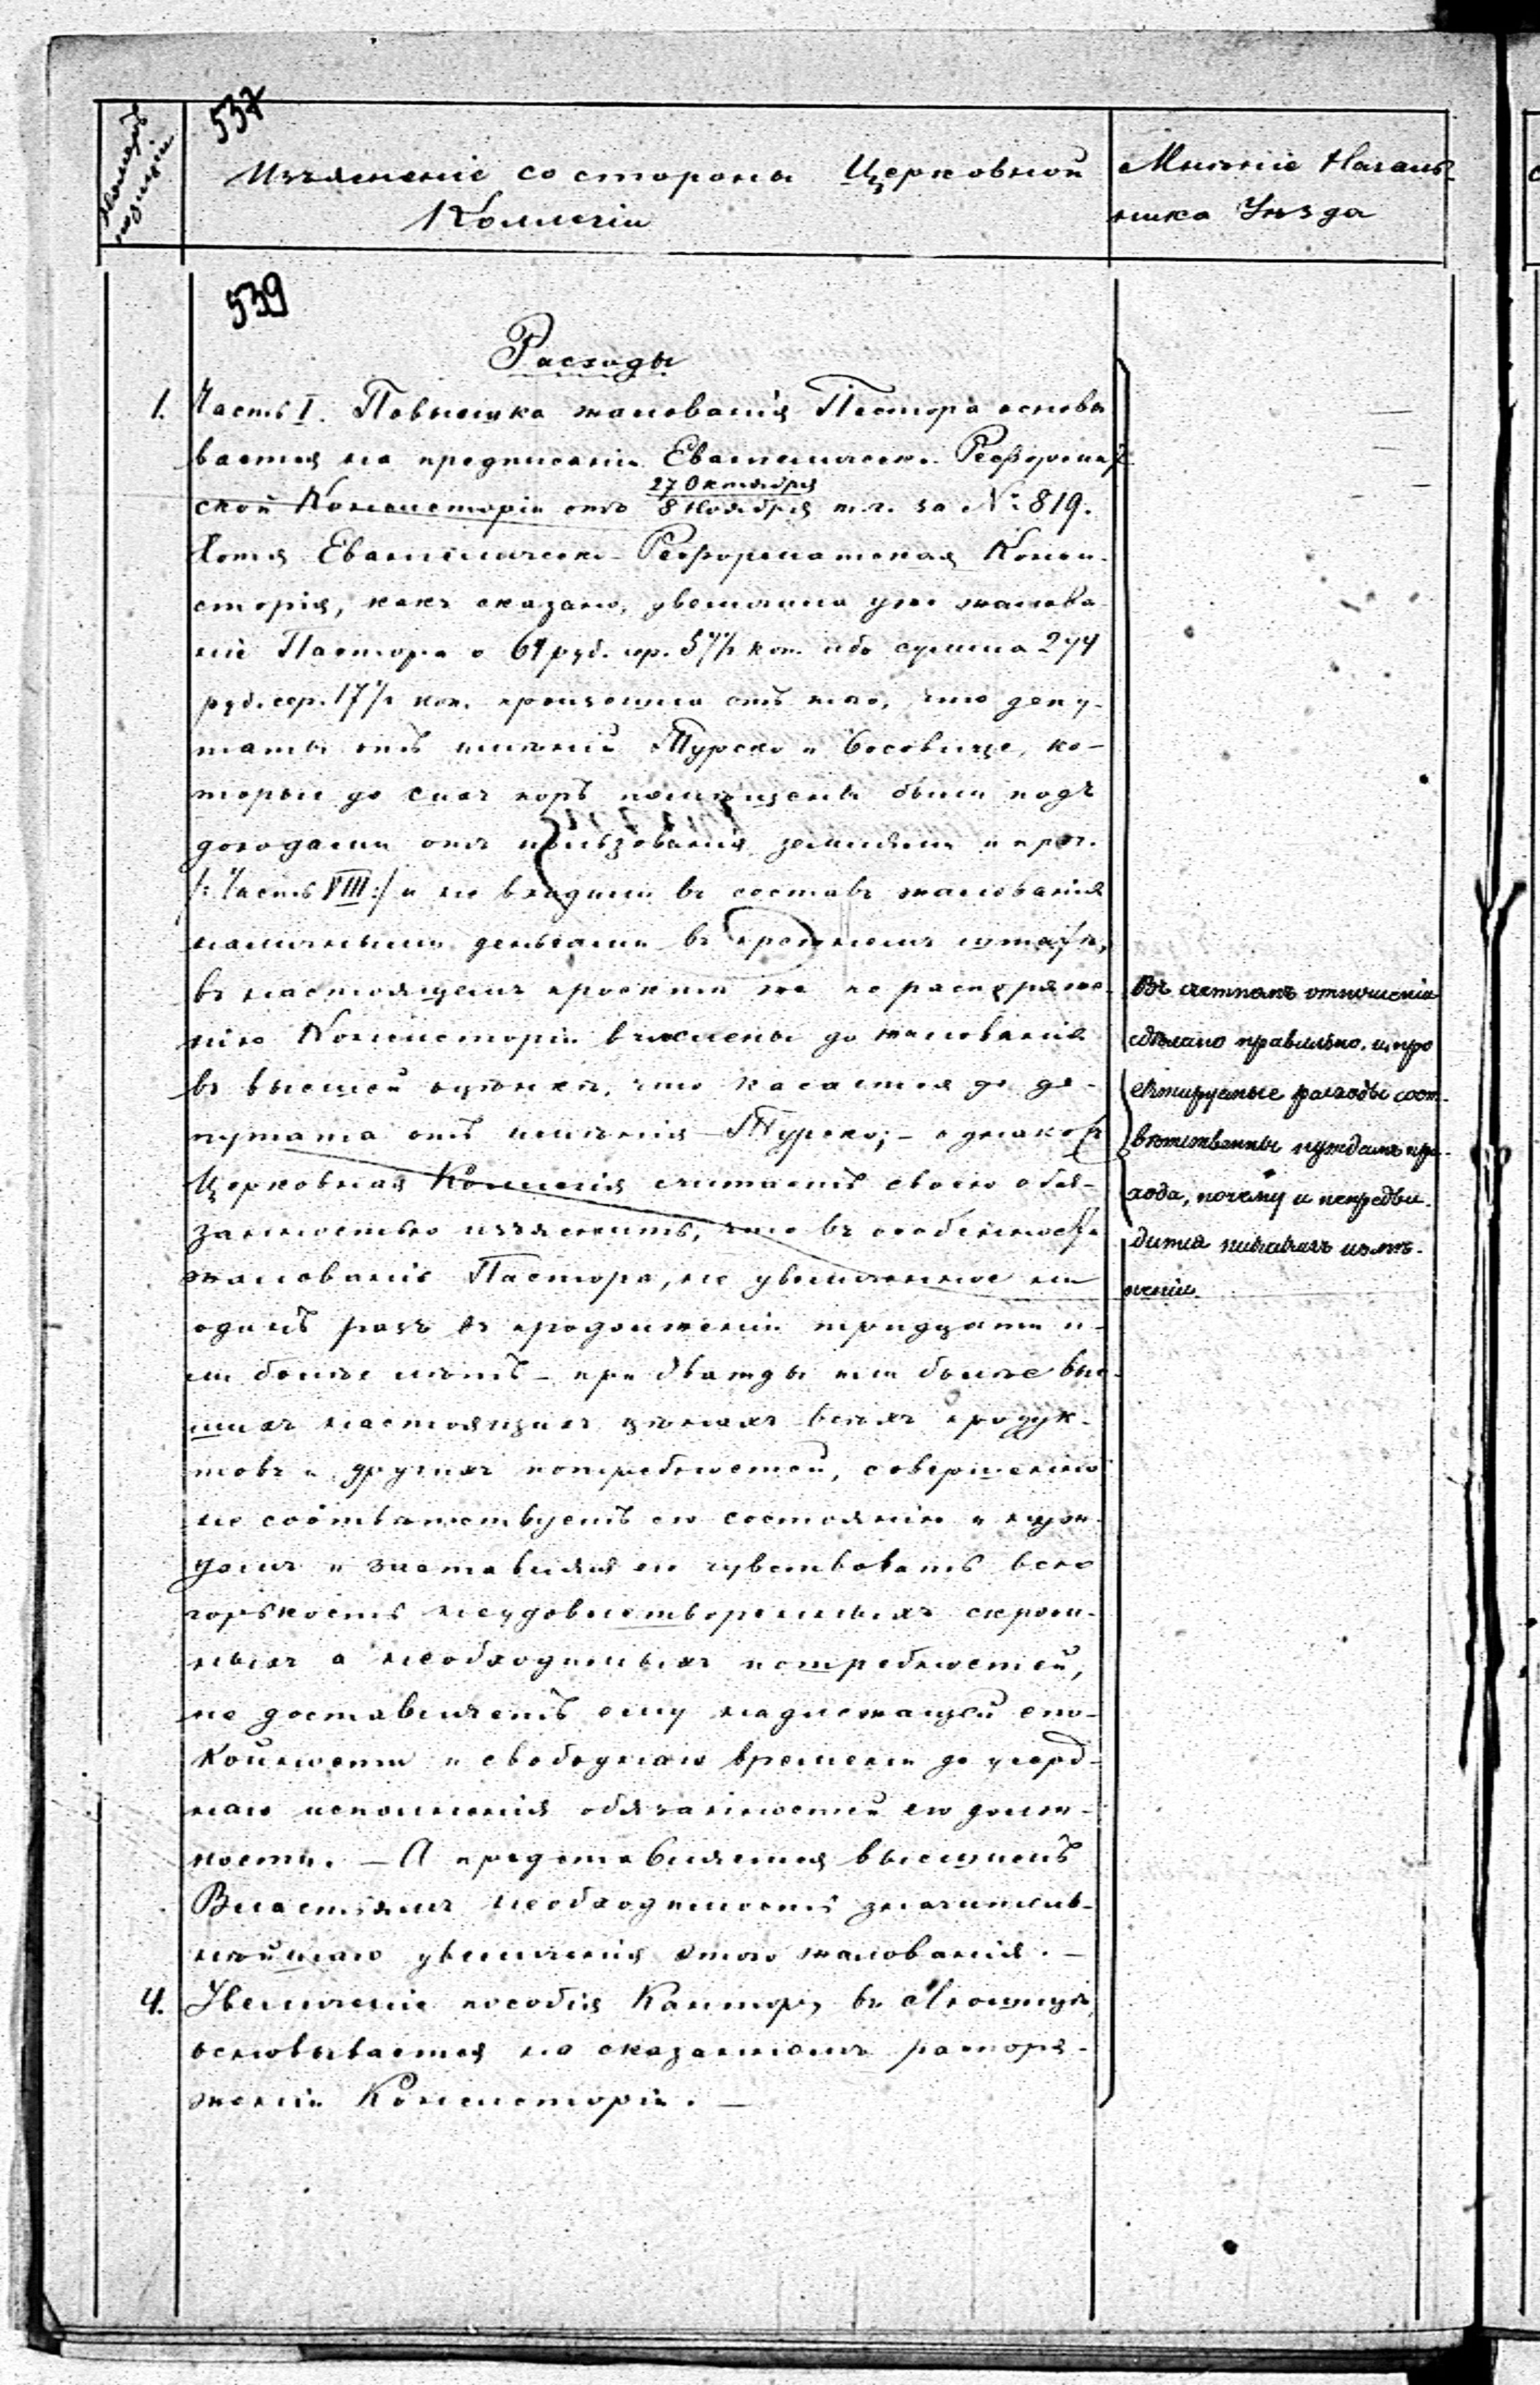 537
Номеръ
позиціи
Изъясненіе со стороны Церковной
Коллегіи
Мнѣніе Началь-
ника Уѣзда
539
Расходы
1. Часть I. Повышка жалованія Пастора основы
вается на предписаніи Евангелическо-Реформат
27 Октября
ской Консисторіи отъ 8 Ноября т.г. за №: 819.
Хотя Евангелическо-Реформатская Конси-
сторія, какъ сказано, увеличила уже жалова
ніе Пастора о 61 руб. ср. 57½ коп. ибо сумма 244
руб. сер. 17½ коп. произошла отъ того, что депу-
таты отъ имѣній Турско и Босовице, ко-
торыи до сихъ поръ помѣщены были подъ
доходами отъ пользованія землями и проч.
/: Часть VIII :/ и не входили въ составъ жалованія
наличными деньгами въ прежнемъ штатѣ,
въ настоящемъ проектѣ же по распоряже-
нію Консисторіи включены до жалованія
въ высшей оцѣнкѣ, что касается до де-
путата отъ имѣнія Турско; - однакожъ
Церковная Коллегія считаетъ своею обя-
занностью изъяснить, что въ особенности
жалованіе Пастора, не увеличенное ни
одинъ разъ въ продолженіи тридцати и-
ли болѣе лѣтъ - при дважды или болѣе выс-
шихъ настоящихъ цѣнахъ всѣхъ продук-
товъ и другихъ потребностей, совершенно
не соотвѣтствуетъ его состоянію и нуж-
дамъ и заставляя его чувствовать всю
горькость неудовлетворенныхъ скром-
ныхъ а необходимыхъ потребностей,
не доставляетъ ему надлежащей спо-
койности и свободнаго времени до усерд-
наго исполненія обязанностей его долж-
ности. - А представляется высшимъ
Властямъ необходимость значитель-
нѣйшаго увеличенія этого жалованія. -
4. Увеличеніе пособія Кантору въ
основывается на сказанномъ распоря-
женіи Консисторіи. -
Въ счетномъ отношеніи
сдѣлано правильно, и про
ектируемые расходы соот-
вѣтственны нуждамъ при-
хода, почему и непредви-
дится никакихъ измѣ-
неній.